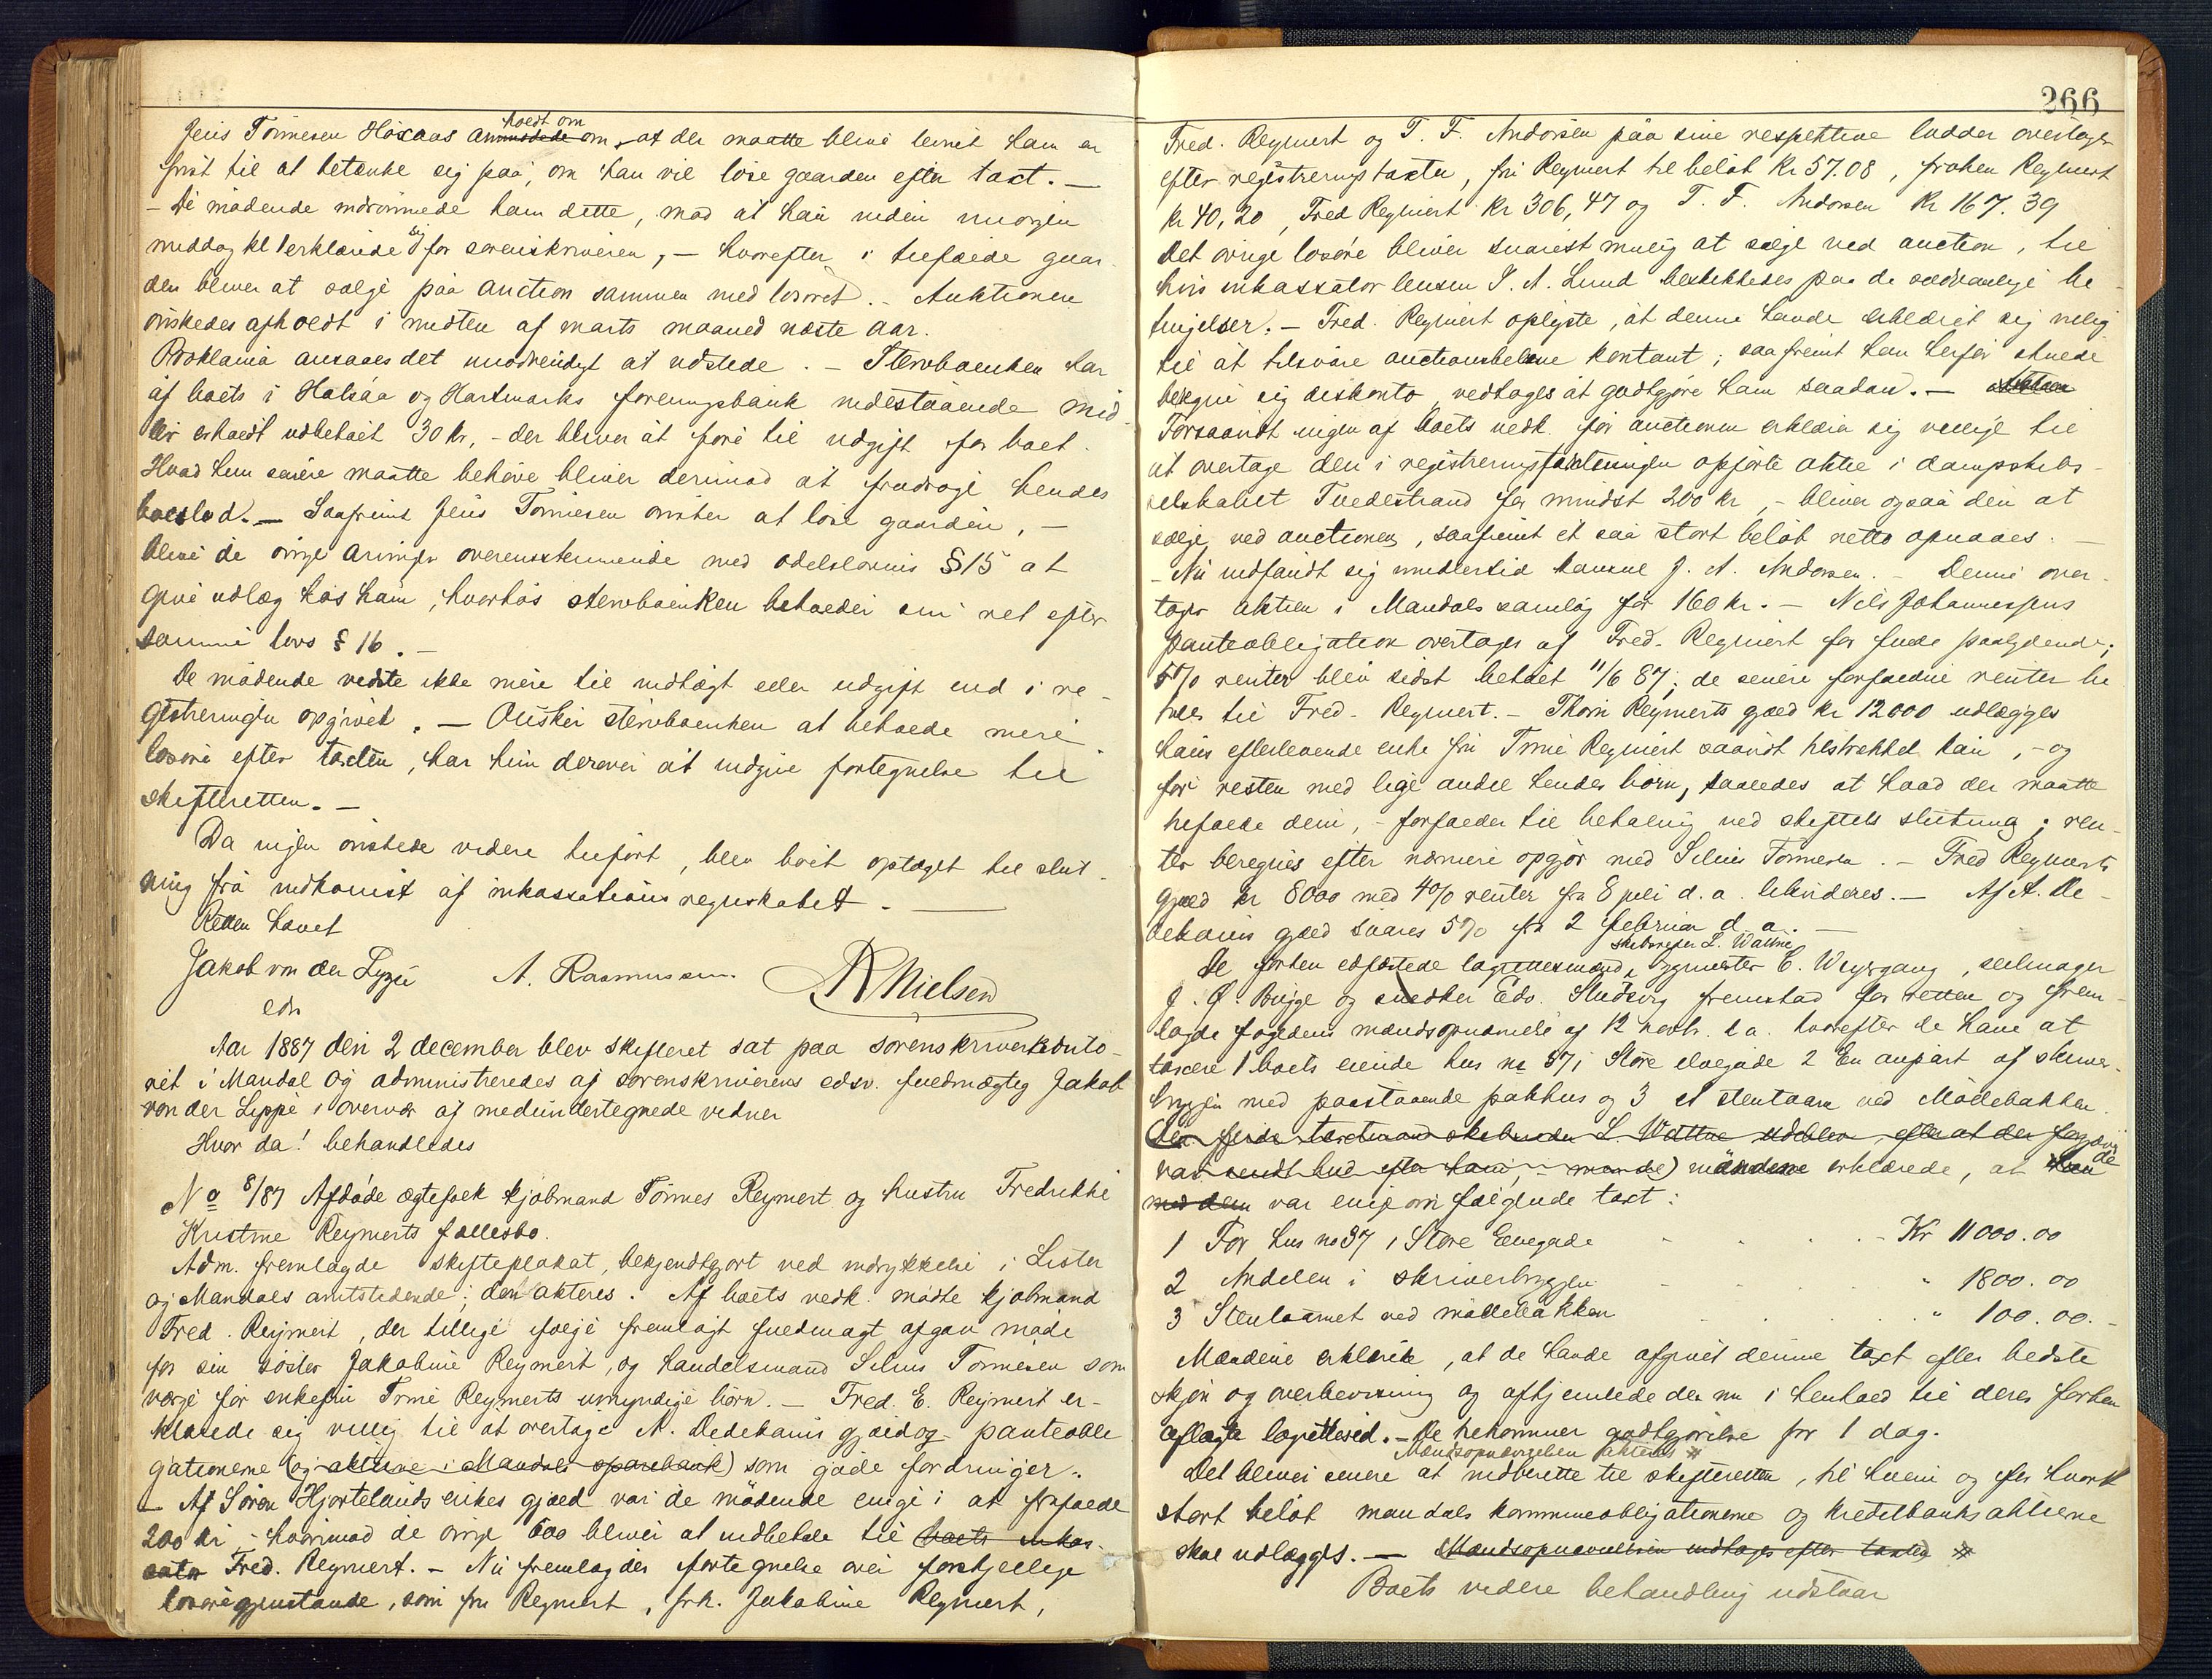 Jens Tønnesen Høiaas anmodede om hoedt om, at der maatte blive levnet ham en
frist til at betænke sig paa, om han vil løse gaarden efter taxt. —
– De mødende indrømmede ham dette, mod at han inden imorgen
middag kl 1 erklærede sig for sorenskriveren, – hvorefter i tilfælde gaar-
den bliver at sælge paa auction sammen med løsøret. – Auktionen
ønskedes afholdt i midten af marts maaned næste aar.
Proklama ansaaes det unødvendigt at udstede. – Stervboenken har
af boets i Halsaa og Hartmarks foreningsbank indestaaende mid-
ler erholdt udbetalt 30 kr, – der bliver at føre til udgift for boet.
Hvad hun senere maatte behøve bliver derimod at fradrage hendes
boeslod. – Saafremt Jens Tønnesen ønsker at løse gaarden, –
blive de øvrige arvinger overensstemmende med odelslovens § 15 at
give udlæg hos ham, hvorhos stervboenken beholder sin ret efter
samme lovs § 16. –
De mødende vidste ikke mere til indtægt eller udgift end i re-
gistreringen opgivet. – Ønsker stervboenken at beholde mere
løsøre efter taxten, har hun derover at indgive fortegnelse til
skifteretten. –
Da ingen ønskede videre tilført, blev boet optaget til slut-
ning fra indkomst af inkassationsregnskabet. —
Retten hævet
Jakob von der Lippe A. Rasmussen. R Nielsen
edsv
Aar 1887 den 2 december blev skifteret sat paa sorenskriverkonto-
ret i Mandal og administreredes af sorenskriverens edsv. fuldmægtig Jakob
von der Lippe i overvær af medundertegnede vidner
Hvor da! behandledes
No 8/87 Afdøde ægtefolk kjøbmand Tønnes Reymert og hustru Fredrikke
Kristine Reymerts fællesbo.
Adm. fremlagde skifteplakat, bekjendtgjort ved indrykkelse i Lister
og Mandals amtstidende; den akteres. Af boets vedk. mødte kjøbmand
Fred. Reymert, der tillige ifølge fremlagt fuldmagt afgav møde
for sin søster Jakobine Reymert, og handelsmand Selius Tønnesen som
værge for enkefru Trine Reymerts umyndige børn. – Fred. E. Reymert er-
klærede sig villig til at overtage N. Dedekams gjæld og panteobli
gationerne (og aktierne i Mandals sparebank) som gode fordringer.
– Af Søren Hjortelands enkes gjæld var de mødende enige i at frafalde
200 kr, – hvorimod de øvrige 600 bliver at indbetale til boets inkas-
sator Fred. Reymert. – Nu fremlagdes fortegnelse over forskjellige
løsøregjenstande, som fru Reymert, frk. Jakobine Reymert,
266
Fred. Reymert og T. F. Andorsen paa sine respektive lodder overtager
efter registreringstaxten, fru Reymert til beløb Kr 57.08, frøken Reymert
kr 40,20, Fred Reymert kr 306,47 og T. F. Andorsen Kr 167.39
Det øvrige løsøre bliver snarest mulig at sælge ved auction, til
hvis inkassator lensm J. A. Lund beskikkedes paa de sædvanlige be-
tingelser. – Fred. Reymert oplyste, at denne havde erklæret sig villig
til at tilsvare auctionsbeløbene kontant; saafremt han herfor skulde
beregne sig diskonto, vedtages at godtgjøre ham saadan. –
Forsaavidt ingen af boets vedk. før auctionen erklærer sig villige til
at overtage den i registreringsforretningen opførte aktie i dampskibs-
selskabet Tvedestrand for mindst 200 kr, – bliver ogsaa den at
sælge ved auctionen, saafremt et saa stort beløb netto opnaaes. –
– Nu indfandt sig imidlertid konsul J. A. Andorsen. – Denne over-
tager aktien i Mandals samlag for 160 kr. – Nils Johannessens
panteobligation overtages af Fred. Reymert for fulde paalydende;
5% renter blev sidst betalt 11/6 87; de senere forfaldne renter be
tales til Fred. Reymert. – Thom Reymerts gjæld kr 12000 udlægges
hans efterlevende enke fru Trine Reymert saavidt tilstrækkel kan, – og
for resten med lige andel hendes børn, saaledes at hvad der maatte
tilfalde dem, – forfalder til betaling ved skiftets slutning; ren-
ter beregnes efter nærmere opgjør med Selius Tønnesen. – Fred Reymerts
gjæld kr 8000 med 4% renter fra 8 juli d. a. likvideres. – Af A. De-
dekams gjæld svares 5% fra 2 februar d. a. –
De forhen edfæstede lagrettesmænd, skibsreder L. Wattne, bygmester C. Weyergang, seilmager
J. G. Bugge og snedker Edv. Studsvig fremstod for retten og frem-
lagde fogdens mændsopnævnelse af 12 novbr. d. a. hvorefter de have at
taxere 1 boets eiende hus no 37 i Store elvegade 2 En anpart af skriver-
bryggen med paastaaende pakhus og 3 et stentaarn ved Møllebakken.
Den fjerde taxtmand skibsreder L. Wattne udeblev, efter at der forgjæves
var sendt bud efter ham, – mændene erklærede, at de
var enige om følgende taxt:
1 For hus no 37 i Store Elvegade - . . - Kr 11000.00
2 Andelen i skriverbryggen - . . " 1800.00
3 Stentaarnet ved møllebakken . . . " 100.00.
Mændene erklærede, at de havde afgivet denne taxt efter bedste
skjøn og overbevisning og afhjemlede den nu i henhold til deres forhen
aflagte lagrettesed. – De tilkommer godtgjørelse for 1 dag.
Mændsopnævnelsen akteres
Det bliver senere at indberette til skifteretten, til hvem og for hvor
stort beløb mandals kommuneobligationerne og kreditbanksaktierne
skal udlægges. — Mandsopnævnelsen indtages efter taxten
Boets videre behandling udstaar